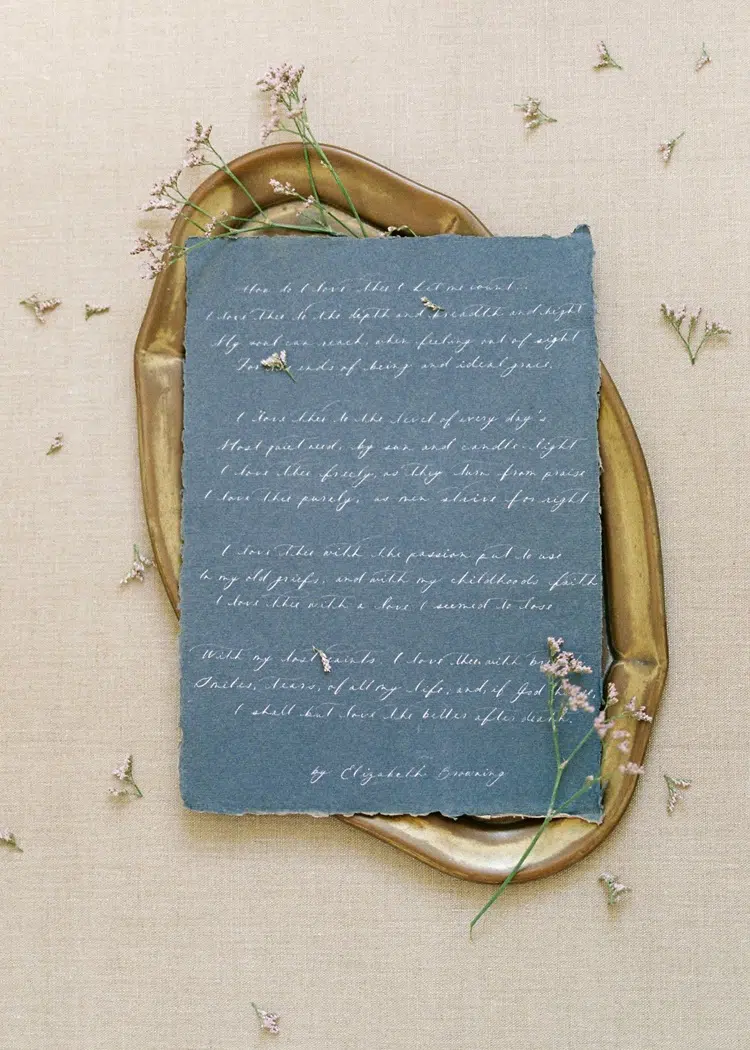 How do I love thee? Let me count...
I love thee to the depth and breadth and hight
My soul can reach, when feeling out of sight
For ends of being and ideal grace.
I love thee to the level of every day's
Most quiet need, by sun and candle-light
I love thee freely, as they turn from praise
I love thee purely, as men strive for right
I love thee with the passion put to use
In my old griefs, and with my childhoods faith
I love thee with a love I seemed to lose
With my lost saints. I love thee with
Smiles, tears, of all my life, and, if God
I shall but love the better after death.
by Elizabeth Browning